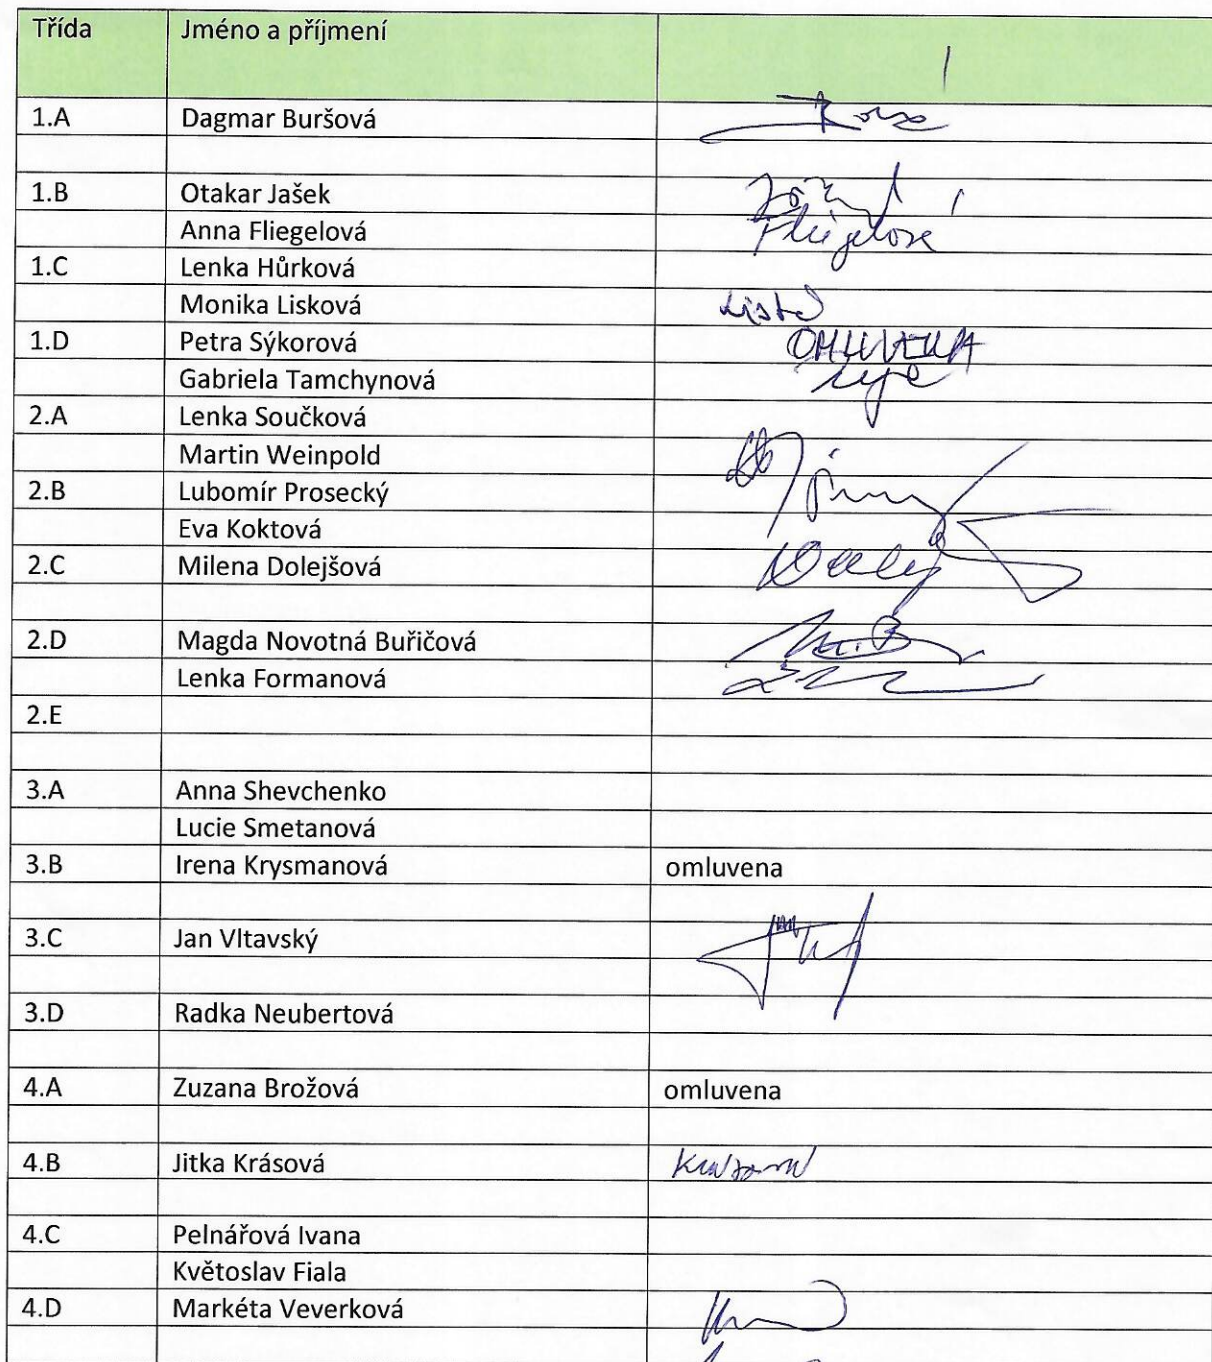 Třída Jméno a příjmení
1.A Dagmar Buršová
1.B Otakar Jašek
Anna Fliegelová Fliegelová
1.C Lenka Hůrková
Monika Lisková
1.D Petra Sýkorová OMLUVENA
Gabriela Tamchynová
2.A Lenka Součková
Martin Weinpold
2.B Lubomír Prosecký
Eva Koktová
2.C Milena Dolejšová
2.D Magda Novotná Buřičová
Lenka Formanová
2.E
3.A Anna Shevchenko
Lucie Smetanová
3.B Irena Krysmanová omluvena
3.C Jan Vltavský
3.D Radka Neubertová
4.A Zuzana Brožová omluvena
4.B Jitka Krásová
4.C Pelnářová Ivana
Květoslav Fiala
4.D Markéta Veverková